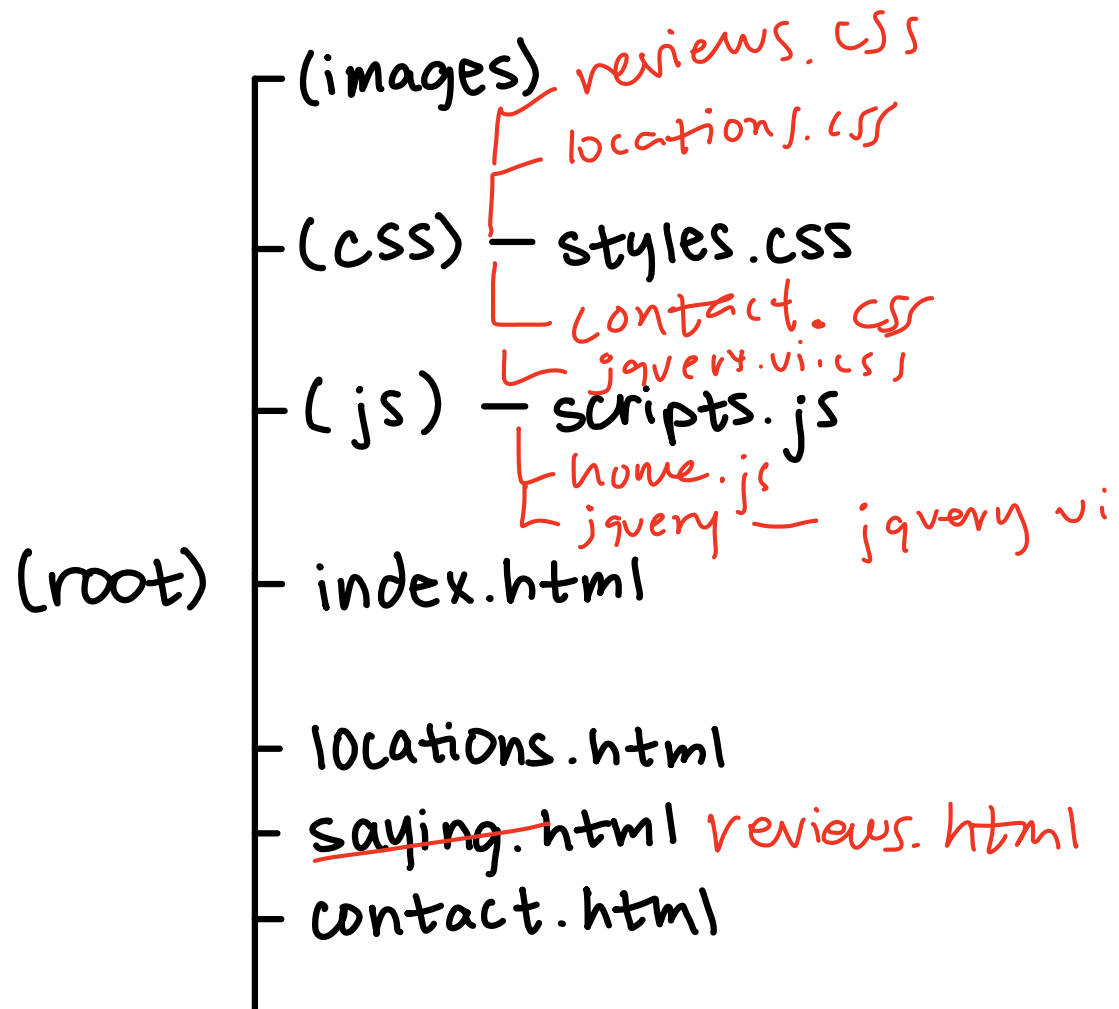 (images) reviews.css
locations.css
(css) styles.css
contact.css
jquery.ui.css
(js) scripts.js
home.js
jquery jquery ui
(root) index.html
locations.html
saying.html reviews.html
contact.html